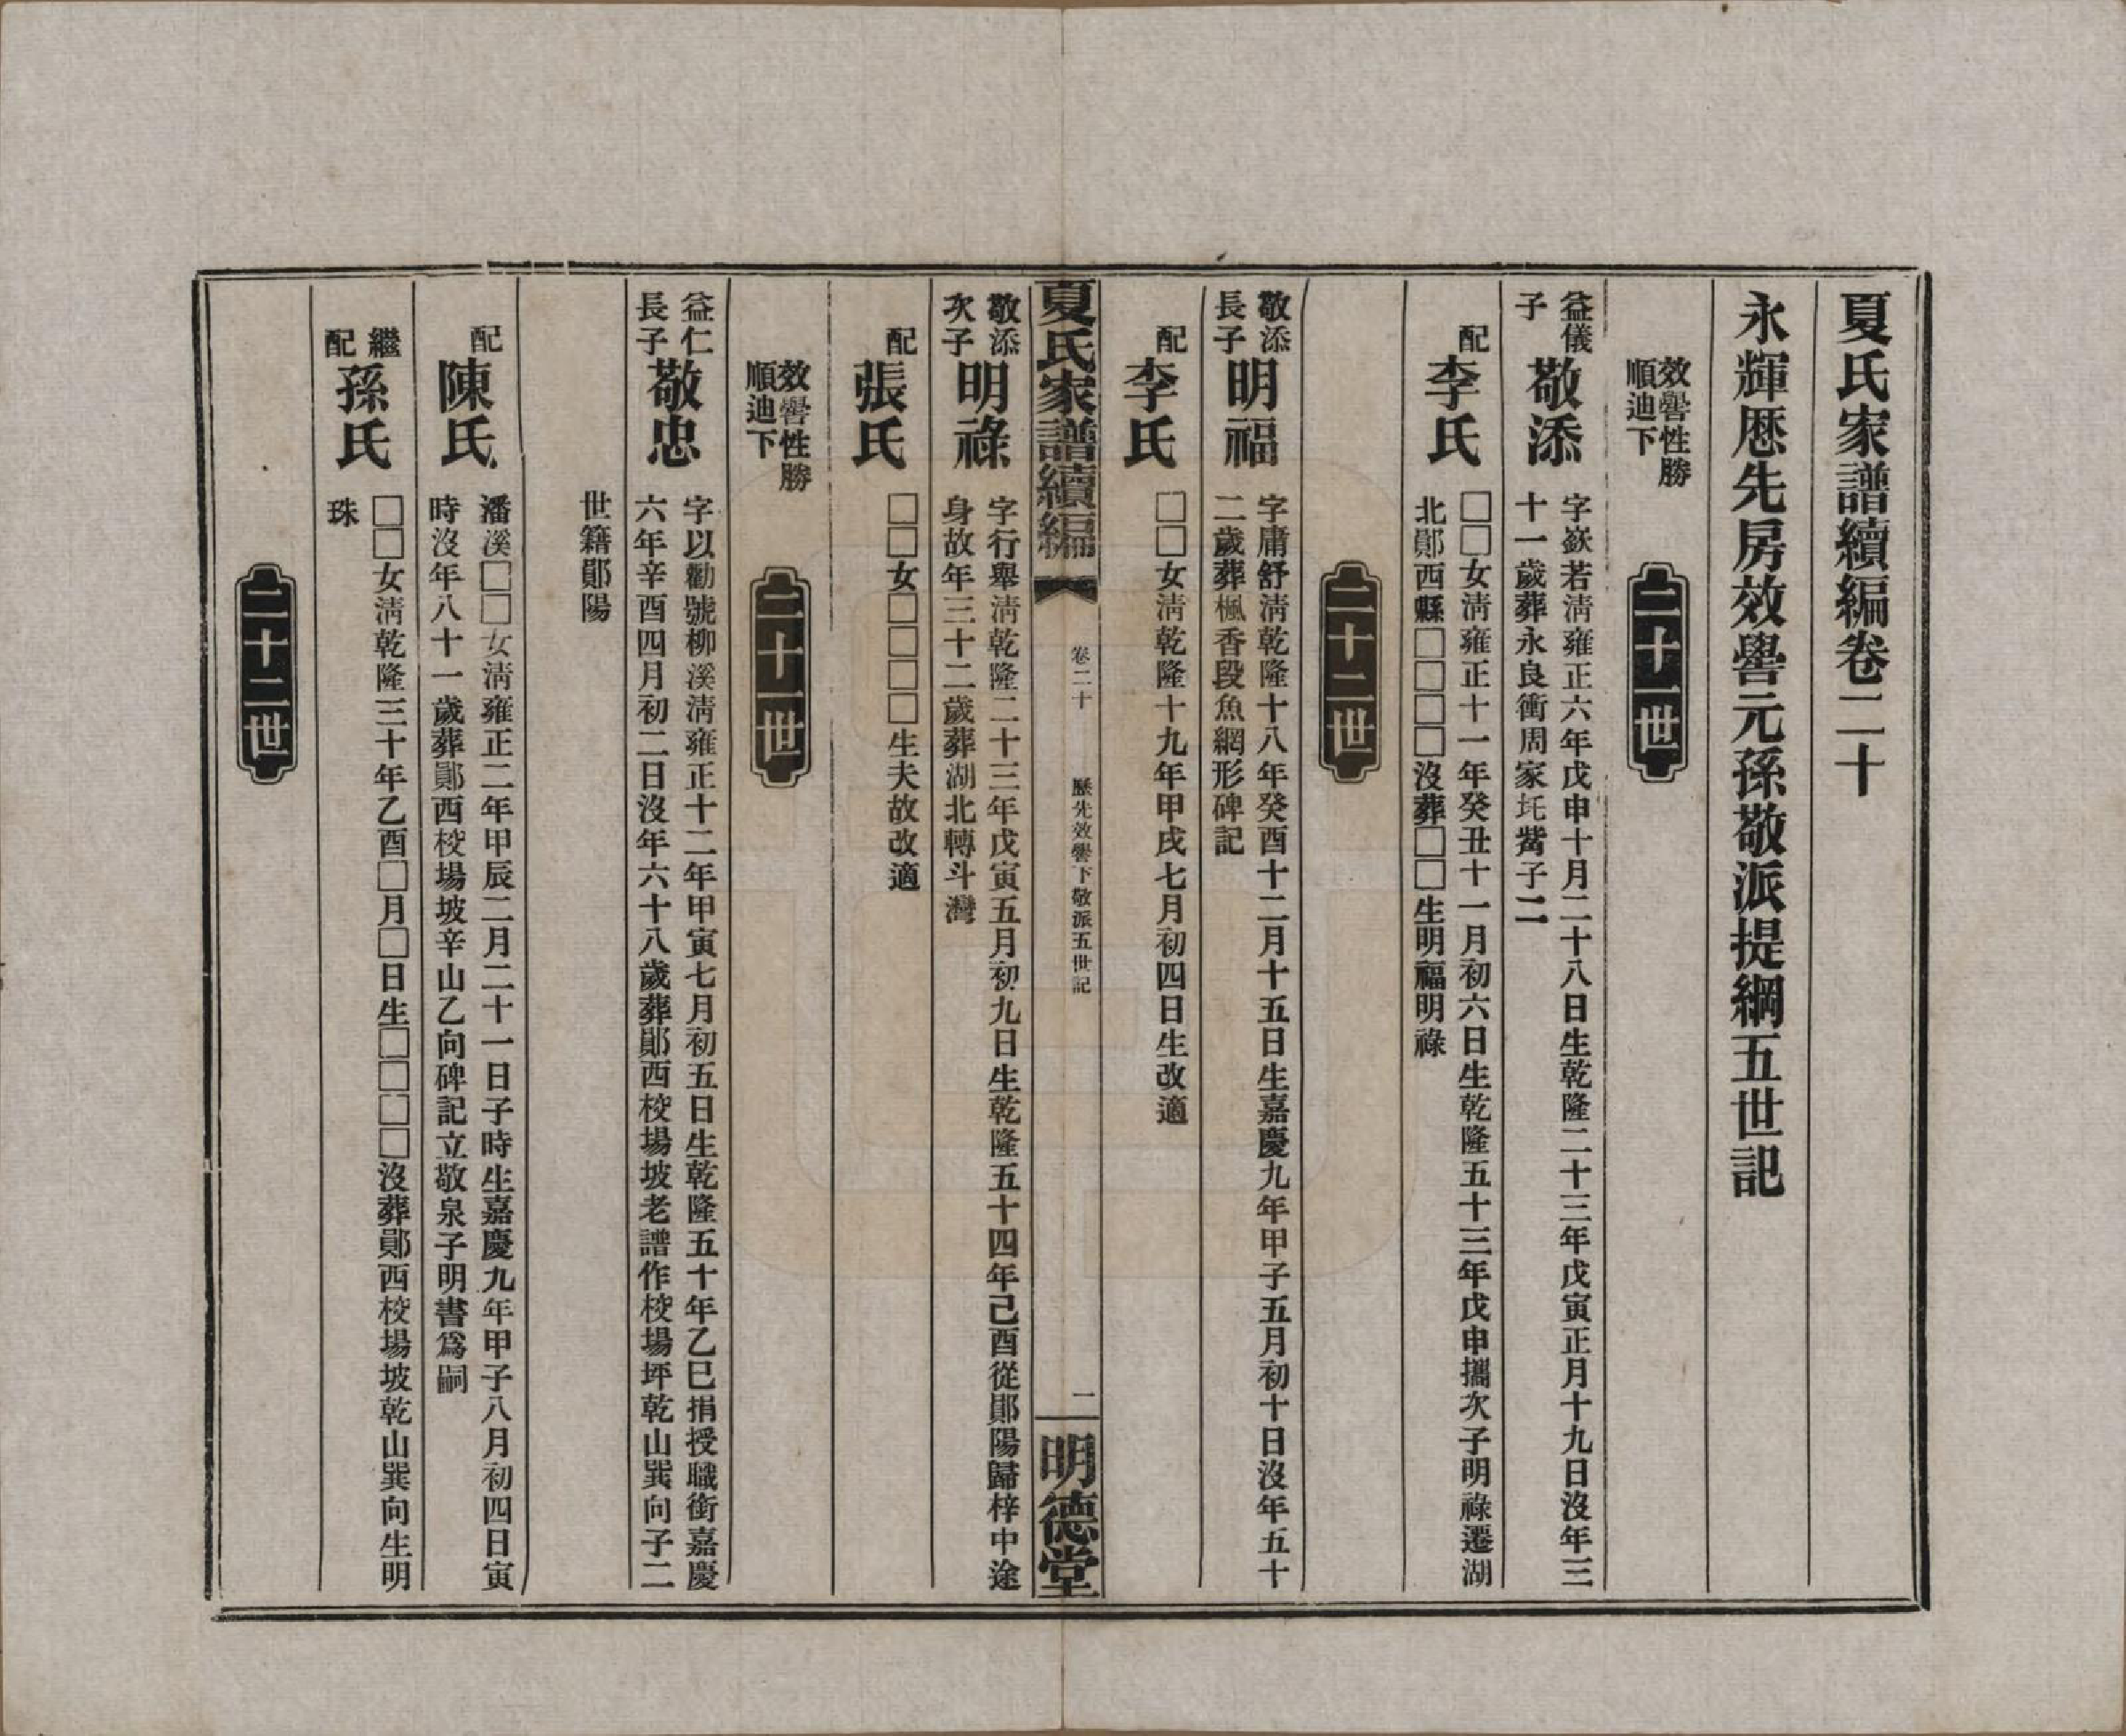 夏氏家譜續編卷二十
永輝歷先房效嚳元孫敬派提綱五世記
效嚳性勝
順迪下
二十一世
益儀
子
敬添
字嶔若淸雍正六年戊申十月二十八日生乾隆二十三年戊寅正月十九日沒年三
十一歲葬永良衝周家圫觜子二
配
李氏
□□女淸雍正十一年癸丑十一月初六日生乾隆五十三年戊申攜次子明祿遷湖
北鄖西縣□□□□沒葬□□生明福明祿
二十二世
敬添
長子
明福
字庸舒淸乾隆十八年癸酉十二月十五日生嘉慶九年甲子五月初十日沒年五十
二歲葬楓香段魚網形碑記
配
李氏
□□女淸乾隆十九年甲戌七月初四日生改適
夏氏家譜續編
卷二十
歷先效嚳下敬派五世記
一
明德堂
敬添
次子
明祿
字行舉淸乾隆二十三年戊寅五月初九日生乾隆五十四年己酉從鄖陽歸梓中途
身故年三十二歲葬湖北轉斗灣
配
張氏
□□女□□□□生夫故改適
效嚳性勝
順迪下
二十一世
益仁
長子
敬忠
字以勸號柳溪淸雍正十二年甲寅七月初五日生乾隆五十年乙巳捐授職銜嘉慶
六年辛酉四月初二日沒年六十八歲葬鄖西校場坡老譜作校場坪乾山巽向子二
世籍鄖陽
配
陳氏
潘溪□□女淸雍正二年甲辰二月二十一日子時生嘉慶九年甲子八月初四日寅
時沒年八十一歲葬鄖西校場坡辛山乙向碑記立敬泉子明書爲嗣
繼
配
孫氏
□□女淸乾隆三十年乙酉□月□日生□□□□沒葬鄖西校場坡乾山巽向生明
珠
二十二世